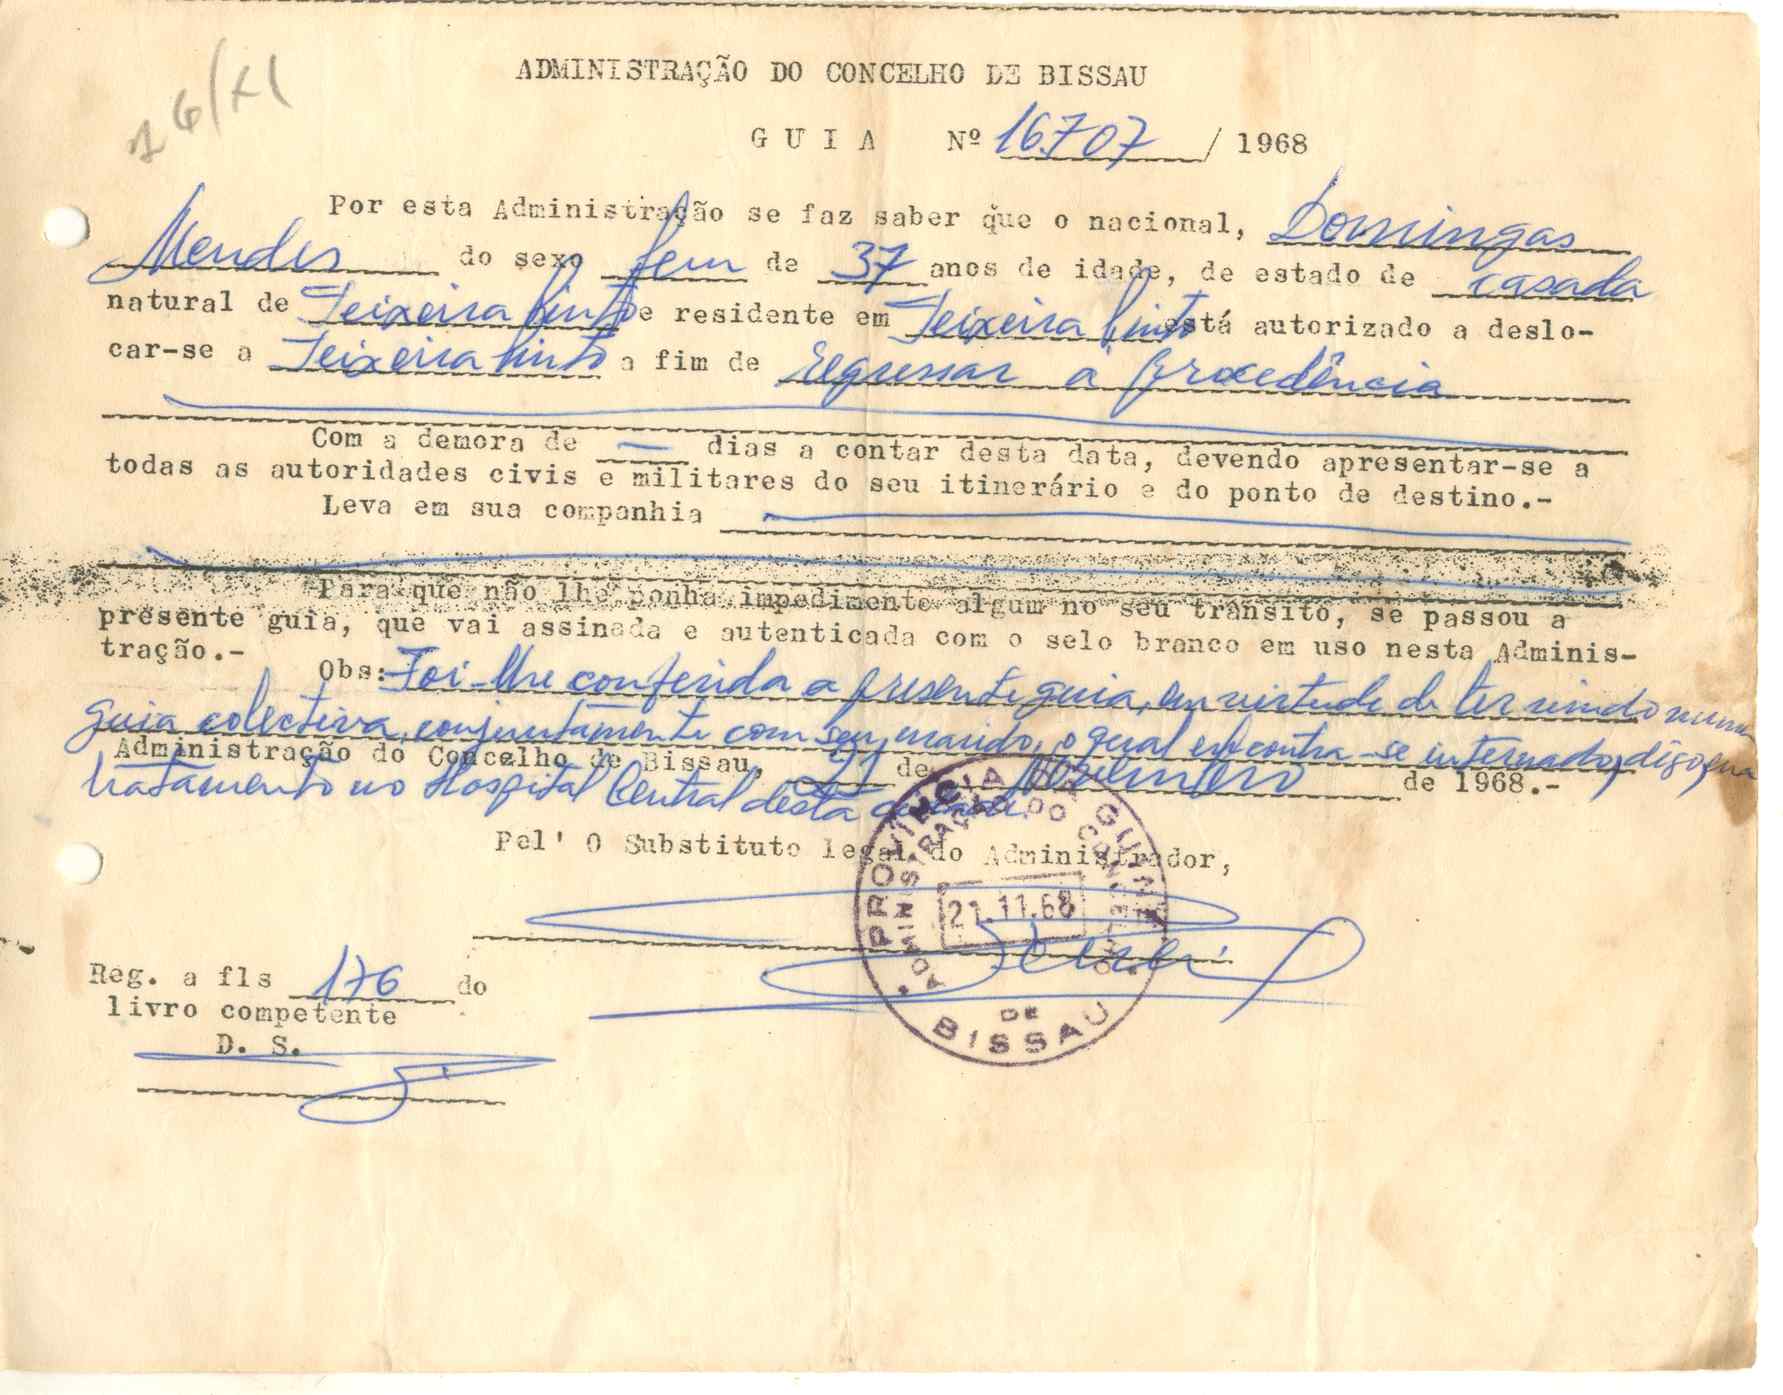 26/XI
ADMINISTRAÇÃO DO CONCELHO DE BISSAU
G U I A Nº 16.707 / 1968
Por esta Administração se faz saber que o nacional, Domingas
Mendes do sexo fem de 37 anos de idade, de estado de casada
natural de Teixeira Pinto e residente em Teixeira Pinto está autorizado a deslo-
car-se a Teixeira Pinto a fim de regressar à procedência
Com a demora de — dias a contar desta data, devendo apresentar-se a
todas as autoridades civis e militares do seu itinerário e do ponto de destino.-
Leva em sua companhia
Para que não lhe ponha impedimento algum no seu trânsito, se passou a
presente guia, que vai assinada e autenticada com o selo branco em uso nesta Adminis-
tração.-
Obs: Foi-lhe conferida a presente guia, em virtude de ter vindo numa
guia colectiva, conjuntamente com seu marido, o qual encontra-se internado, digo, em
Administração do Concelho de Bissau, 21 de Novembro de 1968.-
tratamento no Hospital Central desta cidade.
Pel' O Substituto legal do Administrador,
PROVÍNCIA DA GUINÉ
ADMINISTRAÇÃO DO CONCELHO
21.11.68
DE
BISSAU
Reg. a fls 176 do
livro competente
D. S.